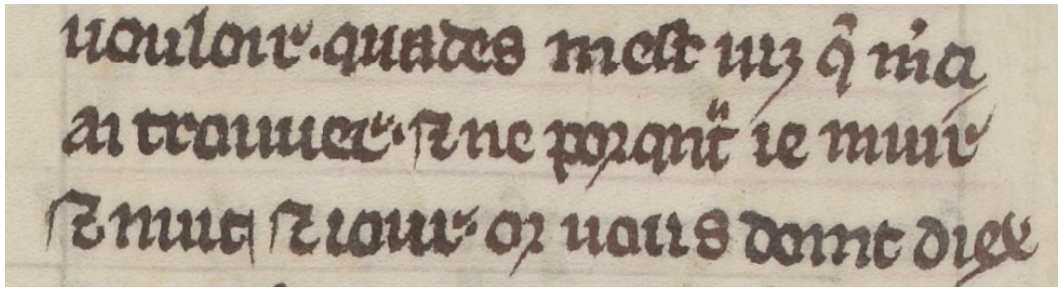 uouloir. quades mest uiz q̃ m'ci
ai trouuer. ⁊ ne porqnt̃ ie muir
⁊ nuit ⁊ iour. or uous doint diex